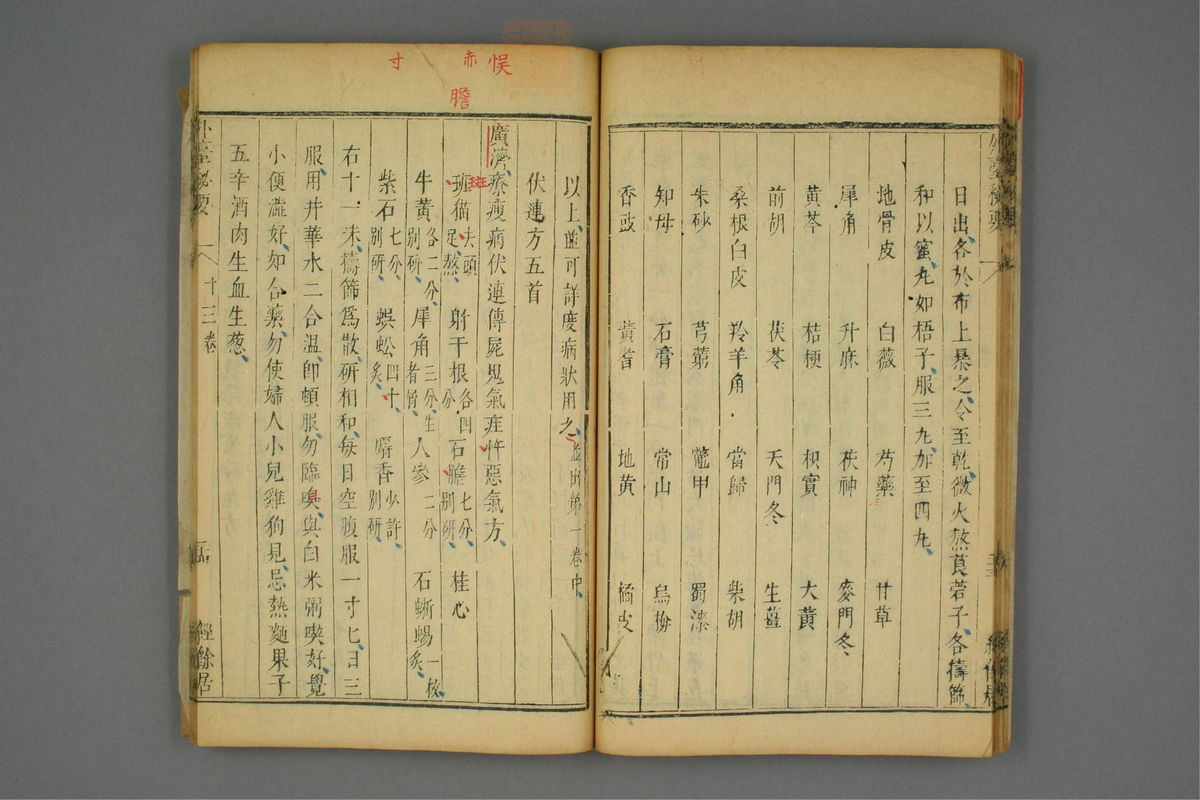 日出各於布上暴之令至乾微火熬莨菪子各擣篩
和以蜜丸如梧子服三丸加至四丸
地骨皮 白薇 芍藥 甘草
犀角 升麻 茯神 麥門冬
黃芩 桔梗 枳實 大黃
前胡 茯苓 天門冬 生薑
桑根白皮 羚羊角 當歸 柴胡
朱砂 芎藭 鼈甲 蜀漆
知母 石膏 常山 烏梅
香豉 黃耆 地黃 橘皮
以上並可詳度病狀用之並出第一卷中
伏連方五首
廣濟療瘦病伏連傳屍鬼氣疰忤惡氣方
斑猫去頭足熬 射干根各四分 石膽七分別研 桂心
牛黃各二分別研 犀角三分生者屑 人參二分 石蜥蜴一枚炙
紫石七分別研 蜈蚣四十炙 麝香少許別研
右十一味擣篩爲散研相和每日空腹服一寸匕日三
服用井華水二合溫卽頓服勿臨嗅與白米粥喫好覺
小便澁好如合藥勿使婦人小兒雞狗見忌熱麵果子
五辛酒肉生血生葱
外臺秘要 十三卷 經餘居
悞
赤
膽
寸
斑